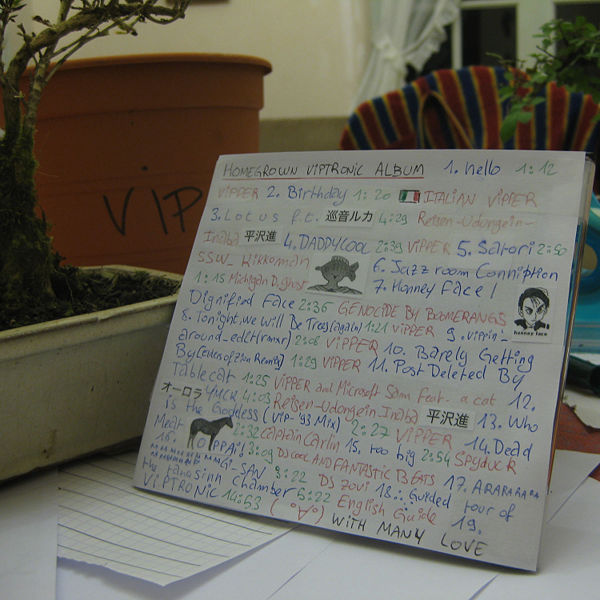 VIP
HOMEGROWN VIPTRONIC ALBUM 1. hello 1:12
VIPPER 2. Birthday 1:20 ITALIAN VIPPER
3. Locus f.t. 巡音ルカ 4:29 Reisen-Udongein-
Inaba 平沢進 4. DADDYCOOL 2:39 VIPPER 5. Satori 2:50
SSWL Kikkoman 6. Jazz room Conniption
1:15 Michigan D. ghost 7. Hanney Face!
Dignified Face 2:36 GENOCIDE BY BOOMERANGS
hanney face
8. Tonight, we will De Tros(again) 1:21 VIPPER 9. Vippin'
around-edit(rmxr) 2:08 VIPPER 10. Barely Getting
By 1:29 VIPPER 11. Post Deleted By
Tablecat 1:25 VIPPER and Microsoft Sam feat. a cat 12.
オーロラ YUCK 4:03 Reisen-Udongein-Inaba 平沢進 13. Who
is the Goddess (VIP-'93 Mix) 2:27 VIPPER 14. Dead
Meat 2:32 Captain Carlin 15. too big 2:54 Spyduck
16. OPPAI! 3:09 DJ COOL AND FANTASTIC BEATS 17. ARARARARA
MMGI-SAN 3:22 DJ Zovi 18. Guided tour of
the tanasinn chamber 5:22 English Guide 19.
VIPTRONIC 14:53 (°∀°) WITH MANY LOVE